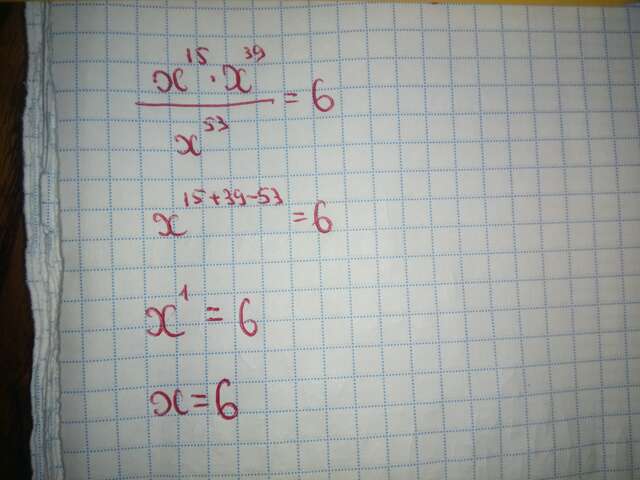 x¹⁵ · x³⁹ / x⁵³ = 6
x¹⁵⁺³⁹⁻⁵³ = 6
x¹ = 6
x = 6